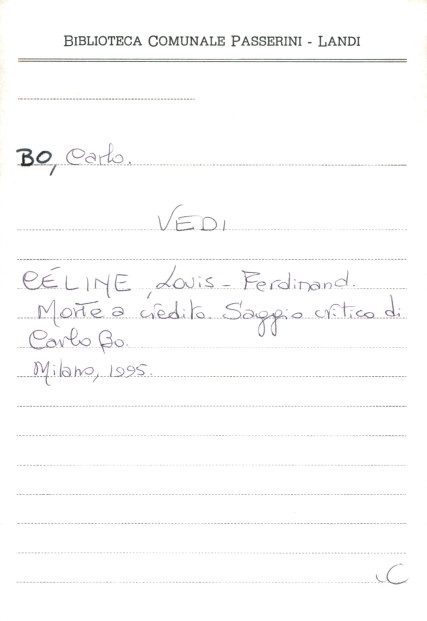 BIBLIOTECA COMUNALE PASSERINI - LANDI
BO, Carlo.
VEDI
CÉLINE, Louis-Ferdinand.
Morte a credito. Saggio critico di
Carlo Bo.
Milano, 1995.